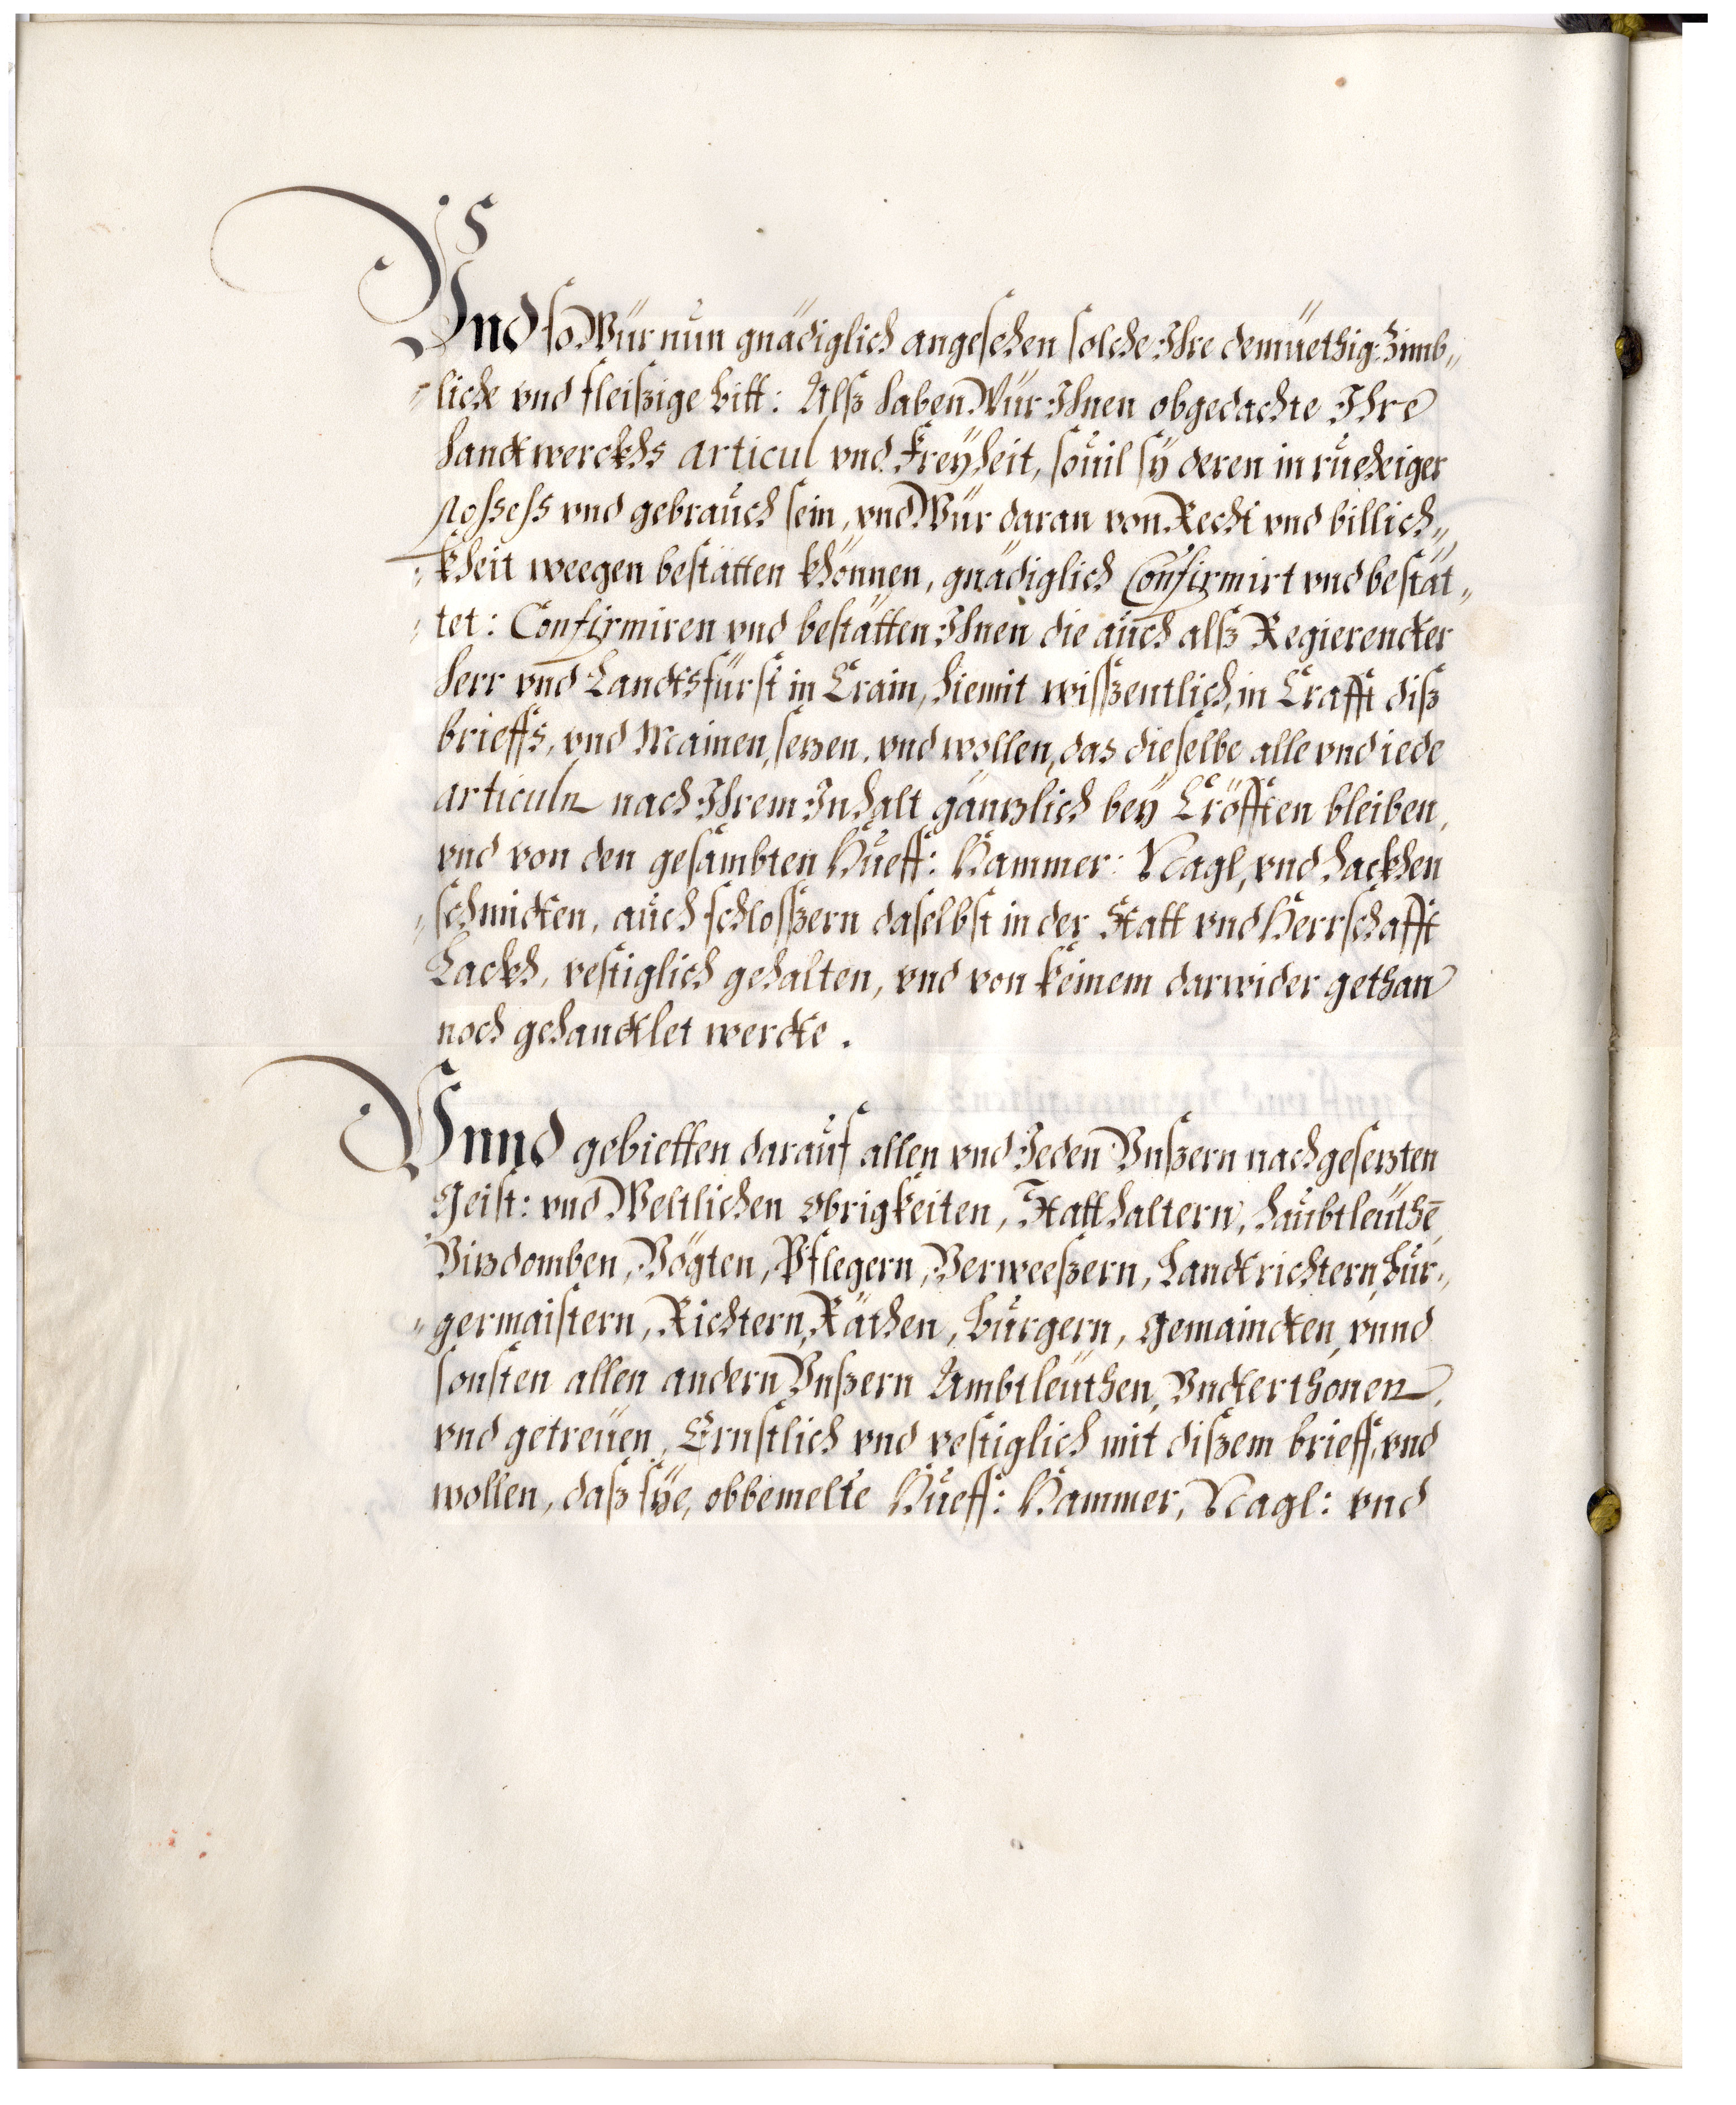 Vnd so Wür nun gnädiglich angesehen solche Ihre demüethig: Zimb„
„liche vnd fleißige bitt: Alß haben Wür Ihnen obgedachte Ihre
handtwerckhs articul vnd Freyheit, souil sÿ deren in ruehiger
possess vnd gebrauch sein, vnd Wür daran von Recht vnd billich„
„kheit weegen bestätten khönnen, gnädiglich Confirmirt vnd bestät„
„tet: Confirmiren vnd bestätten Ihnen die auch alß Regierendter
herr vnd Landtsfürst in Crain, hiemit wissentlich, in Crafft diß
brieffs, vnd Mainen, sezen, vnd wollen, das dieselbe alle vnd iede
articuln nach Ihrem Inhalt gänzlich beÿ Cröfften bleiben,
vnd von den gesambten Hueff: Hammer: Nagl, vnd hackhen
„schmidten, auch schlossern daselbst in der Statt vnd Herrschafft
Lackh, vestiglich gehalten, vnd von keinem darwider gethan
noch gehandtlet werdte.
Vnnd gebietten darauf allen vnd Jeden Vnßern nachgesezten
Geist: vnd Weltlichen obrigkeiten, Statthaltern, haubtleüthē,
Vizdomben, Vögten, Pflegern, Verweeßern, Landtrichtern, bur„
„germaistern, Richtern, Räthen, burgern, gemaindten, vnnd
sonsten allen andern Vnßern Ambtleüthen, Vndterthonen,
vnd getreüen, Ernstlich vnd vestiglich mit dißem brieff, vnd
wollen, daß sÿe, obbemelte Hueff: Hammer, Nagl: vnd